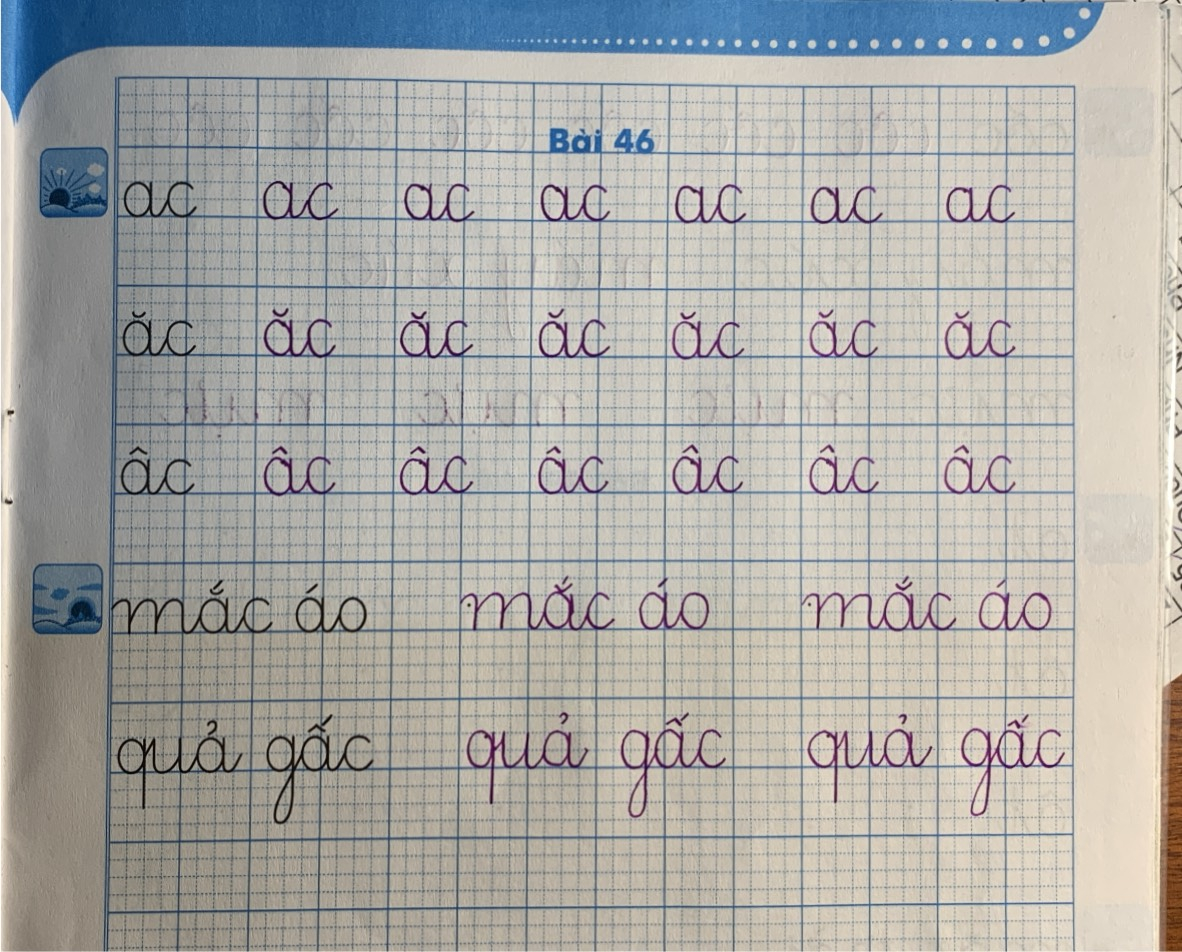 Bài 46
ac ac ac ac ac ac ac
ăc ăc ăc ăc ăc ăc ăc
âc âc âc âc âc âc âc
mắc áo mắc áo mắc áo
quả gấc quả gấc quả gấc